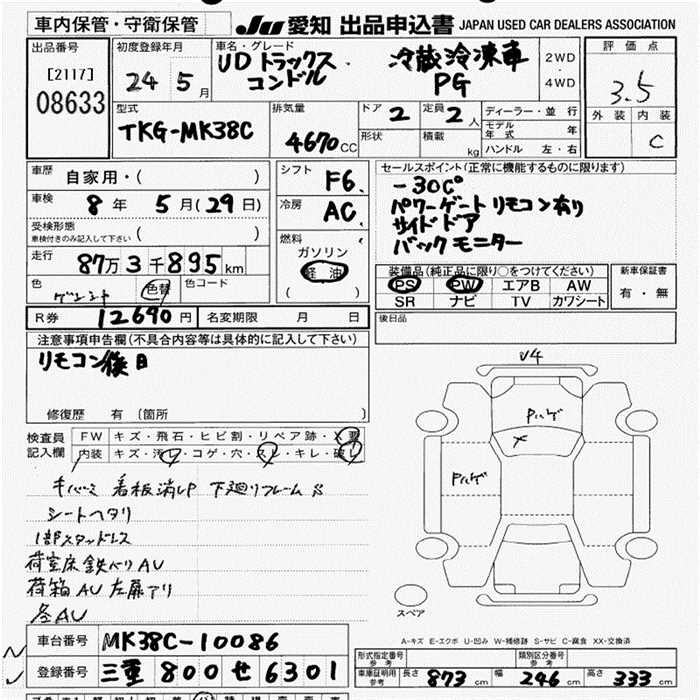 車内保管・守衛保管
JU 愛知 出品申込書 JAPAN USED CAR DEALERS ASSOCIATION
出品番号
[2117]
08633
初度登録年月
24 5月
車名・グレード
UDトラックス
コンドル
冷蔵冷凍車
PG
2WD
4WD
評価点
3.5
外装 内装
C
型式
TKG-MK38C
排気量
4670 CC
ドア 2
定員 2 人
形状
積載 kg
ディーラー・並行
モデル年式 年
ハンドル 左・右
車歴 自家用・( )
車検 8年 5月(29日)
受検形態
車検付きのみ記入して下さい ( )
走行 87万3千895km
色
色替
色コード
シフト F6
冷房 AC
燃料
ガソリン
軽油
( )
セールスポイント(正常に機能するものに限ります)
-30C°
パワーゲート リモコン有り
サイドドア
バックモニター
装備品(純正品に限り○をつけてください)
PS PW エアB AW
SR ナビ TV カワシート
新車保証書
有・無
R券 12690円
名変期限 月 日
後日品
注意事項申告欄(不具合内容等は具体的に記入して下さい)
リモコン後日
修復歴 有 〔箇所 〕
検査員
記入欄
FW キズ・飛石・ヒビ割・リペア跡・X要
内装 キズ・汚レ・コゲ・穴・スレ・キレ・破レ
看板消し 下廻りフレームS
シートヘタリ
1部スタッドレス
荷室床鉄ベリAU
荷箱AU 左扉アリ
各AU
U4
Pハゲ
Pハゲ
スペア
A-キズ E-エクボ U-凹み W-補修跡 S-サビ C-腐食 XX-交換済
車台番号 MK38C-10086
登録番号 三重 800 せ 6301
形式指定番号
参考
類別区分番号
参考
車庫証明用
参考
長さ 873 cm
幅 246 cm
高さ 333 cm